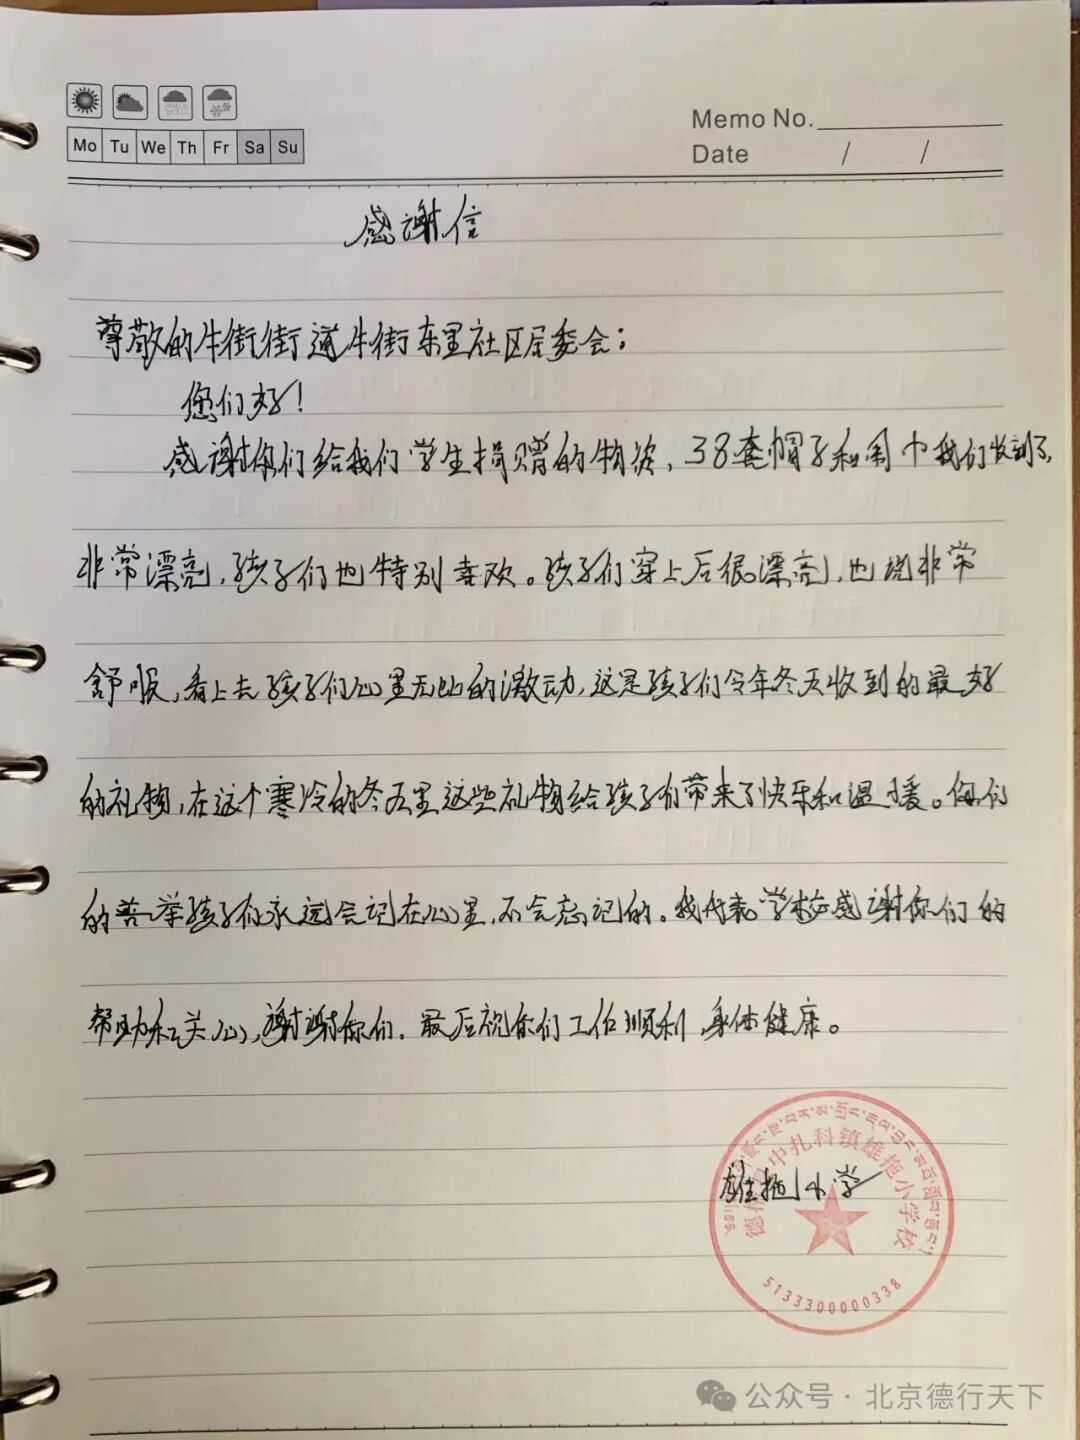 Mo Tu We Th Fr Sa Su
Memo No.
Date / /
感谢信
尊敬的牛街街道牛街东里社区居委会：
您们好！
感谢你们给我们学生捐赠的物资，38套帽子和围巾我们收到了，
非常漂亮，孩子们也特别喜欢。孩子们穿上后很漂亮，也说非常
舒服，看上去孩子们心里无比的激动，这是孩子们今年冬天收到的最好
的礼物，在这个寒冷的冬天里这些礼物给孩子们带来了快乐和温暖。你们
的善举孩子们永远会记在心里，不会忘记的。我代表学校感谢你们的
帮助和关心，谢谢你们。最后祝你们工作顺利，身体健康。
雄拖小学
中扎科镇雄拖小学校
5133300000338
公众号·北京德行天下